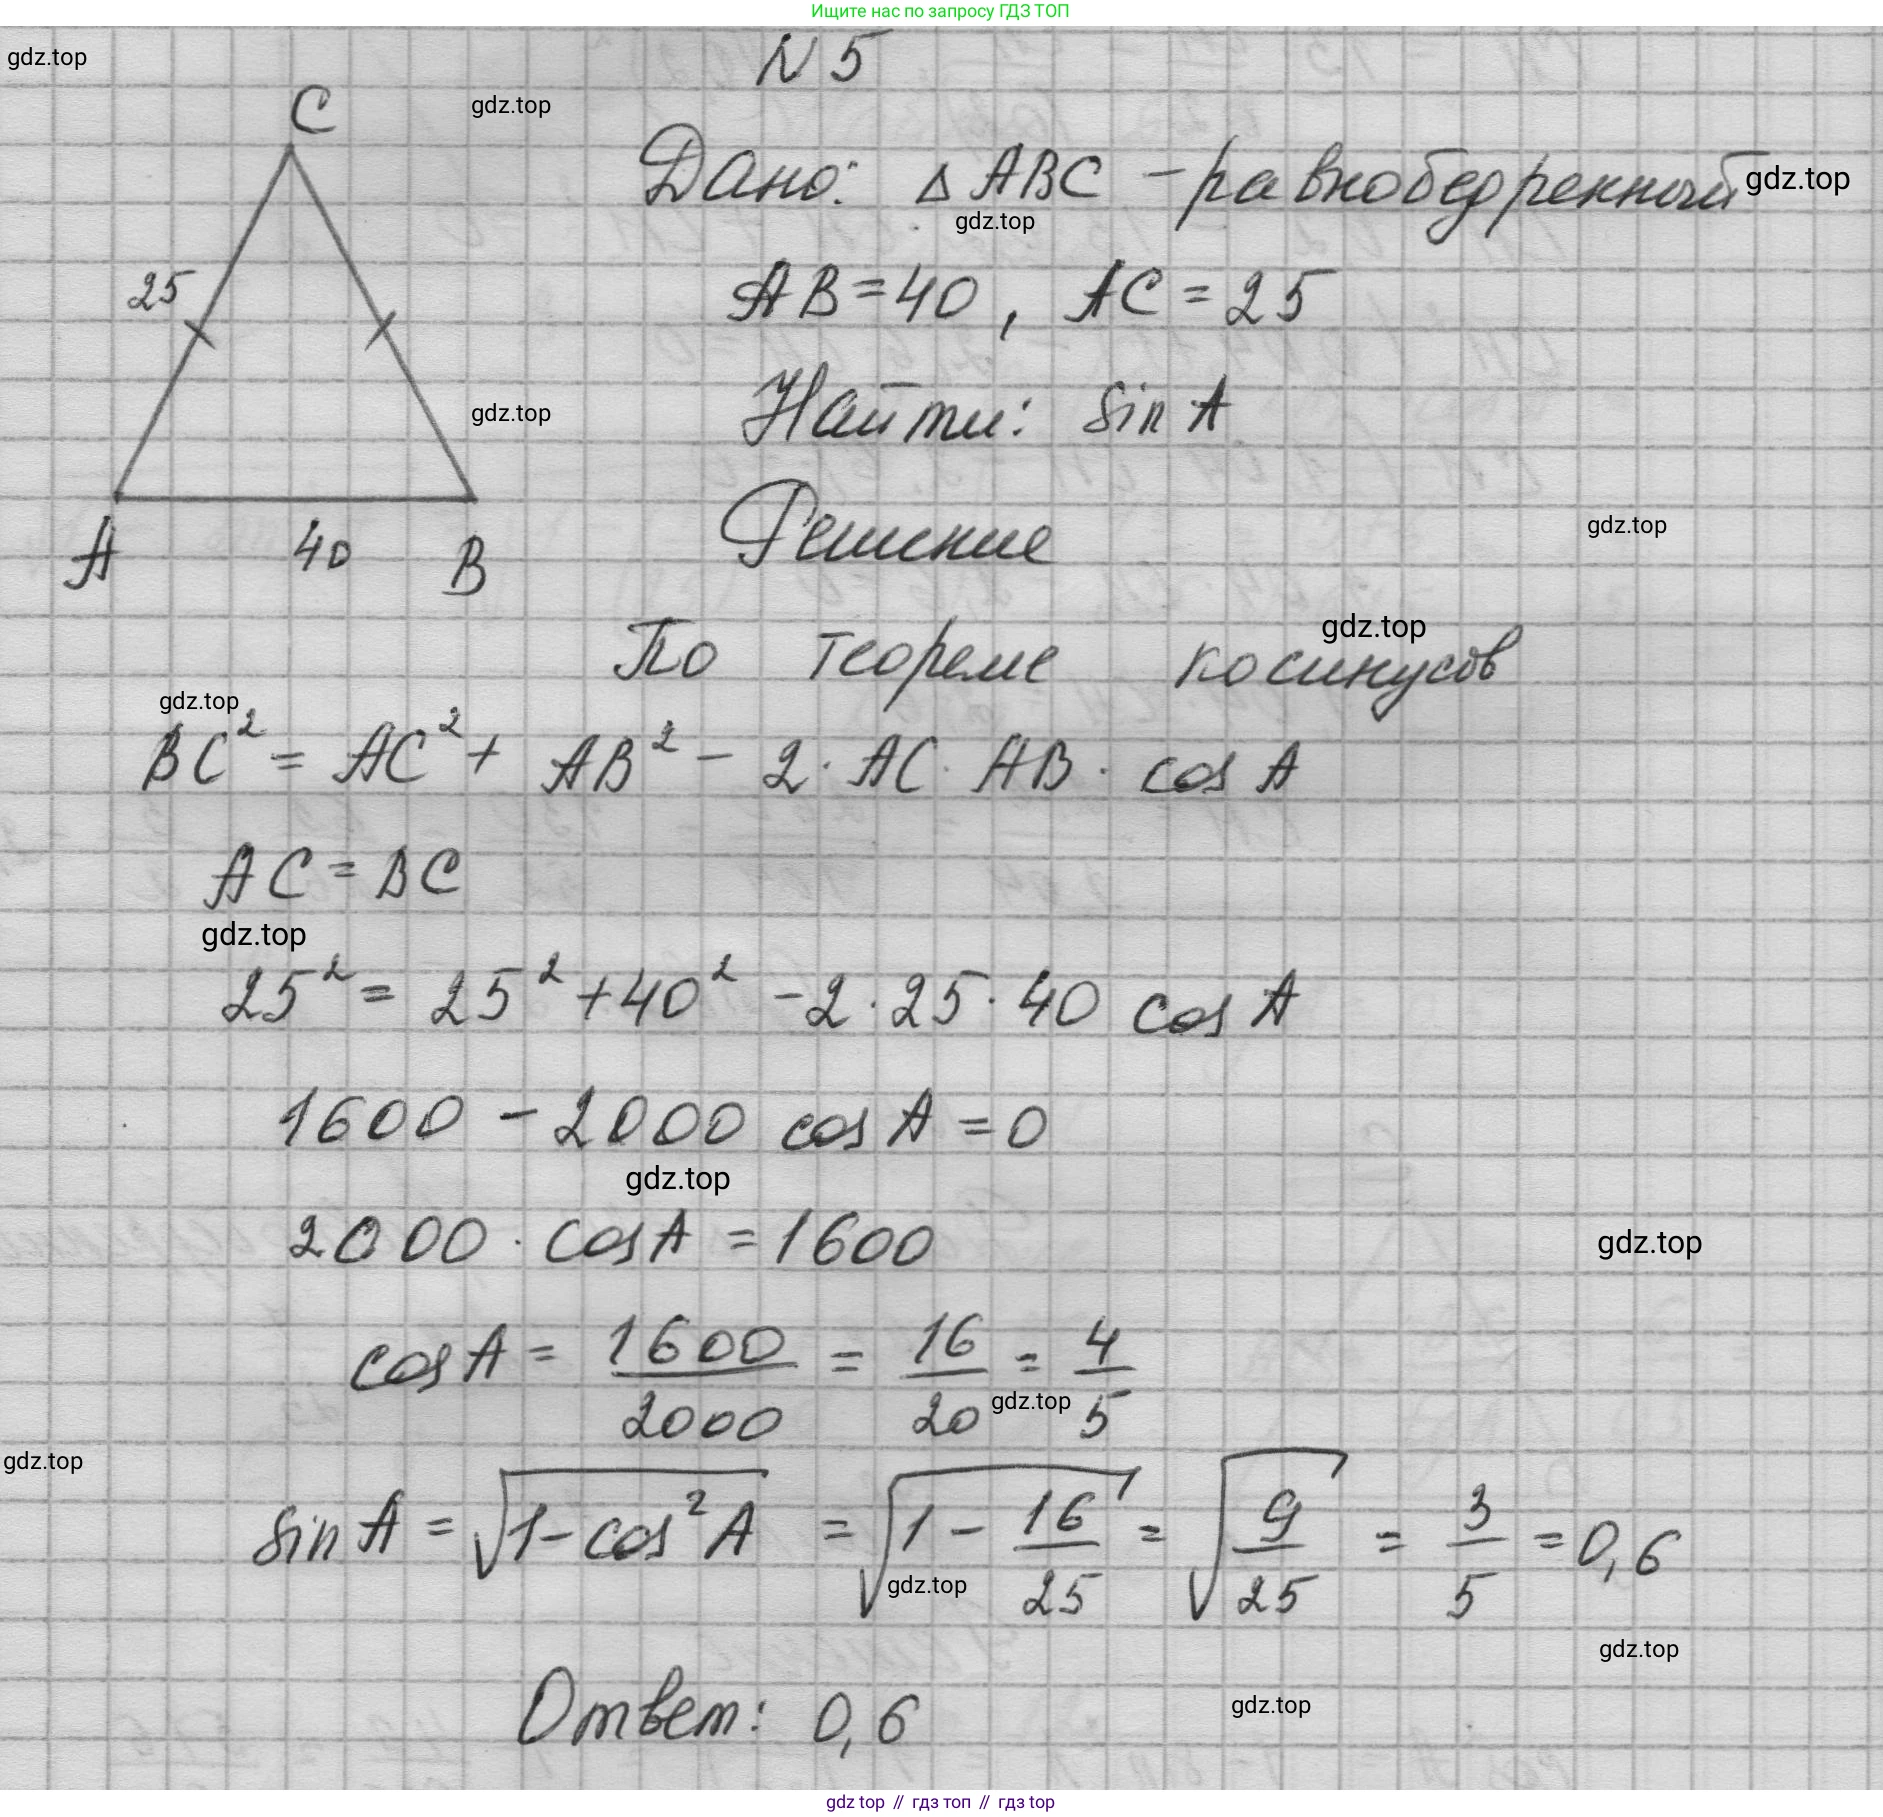 Ищите нас по запросу ГДЗ ТОП
gdz.top
N 5
C
gdz.top
Дано: △ ABC – равнобедренный
gdz.top
gdz.top
25
AB = 40 , AC = 25
Найти: sin A
gdz.top
Решение
gdz.top
A 40 B
gdz.top
По теореме косинусов
gdz.top
BC² = AC² + AB² – 2 · AC · AB · cos A
AC = BC
gdz.top
25² = 25² + 40² – 2 · 25 · 40 cos A
1600 – 2000 cos A = 0
gdz.top
2000 · cos A = 1600
gdz.top
cos A = 1600/2000 = 16/20 = 4/5
gdz.top
gdz.top
sin A = √(1 – cos² A) = √(1 – 16/25) = √(9/25) = 3/5 = 0,6
gdz.top
gdz.top
Ответ: 0,6
gdz.top
gdz top // гдз топ // гдз top